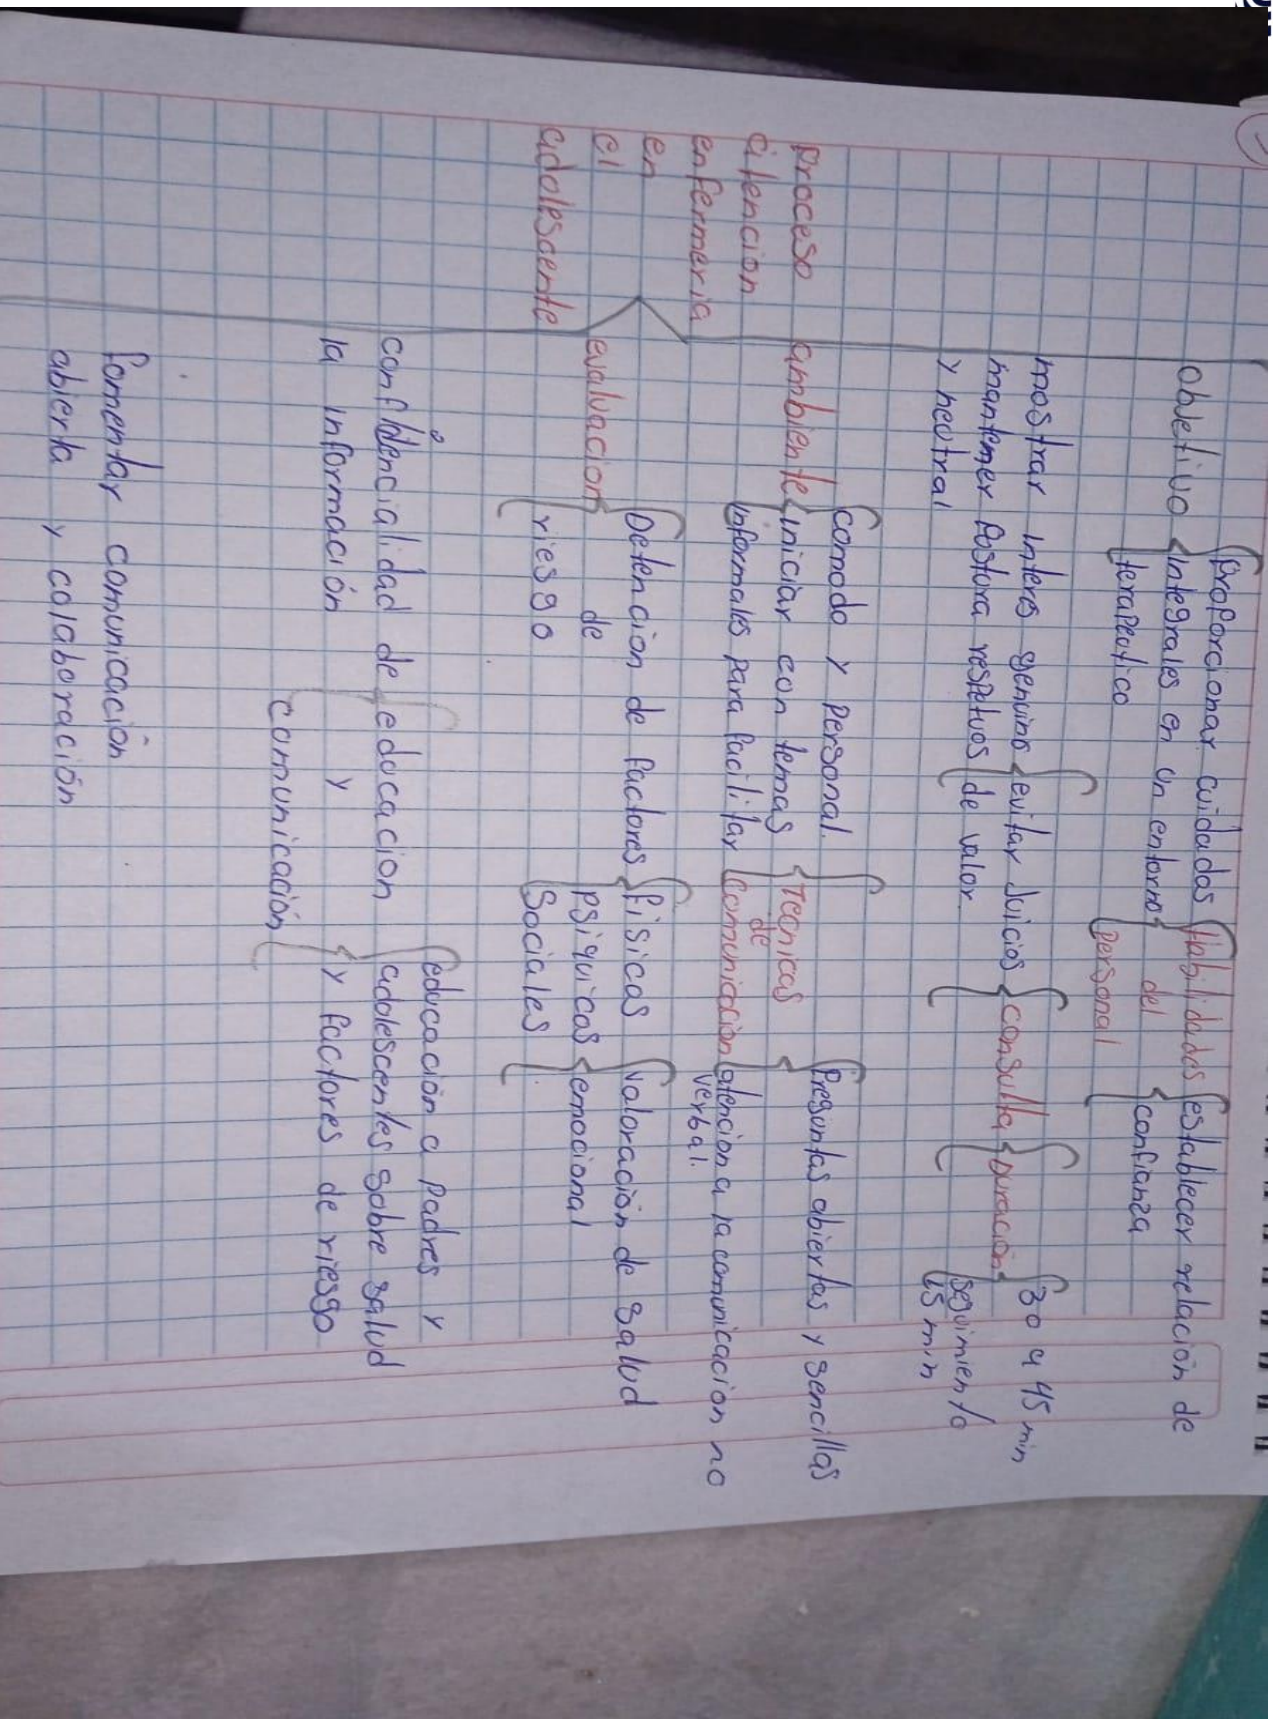 Proceso
atencion
enfermeria
en
el
adolescente
objetivo
proporcionar cuidados
integrales en un entorno
terapeutico
Habilidades
del
personal
establecer relación de
confianza
mostrar interes genuino
mantemer postura respetuos
y neutral
evitar Juicios
de valor.
consulta
Duración
30 a 45 min
seguimiento
15 min
ambiente
comodo y personal.
iniciar con temas
informales para facilitar
Tecnicas
de
Comunicacion
Preguntas abiertas y sencillas
atencion a la comunicacion no
verbal.
evaluacion
Detencion de factores
de
riesgo
fisicas
psiquicas
Sociales
valoración de salud
emocional
confidencialidad de
la información
educacion
y
comunicación
educación a padres y
adolescentes sobre salud
y factores de riesgo
fomentar comunicación
abierta y colaboración